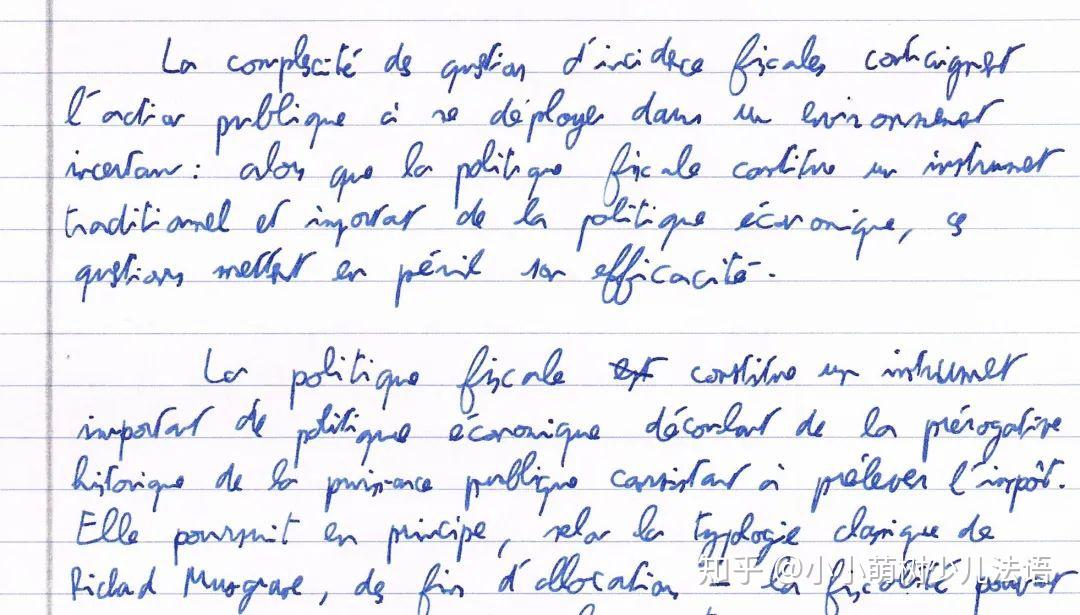 La complexité des questions d'incidence fiscales contraignent
l'action publique à se déployer dans un environnement
incertain : alors que la politique fiscale constitue un instrument
traditionnel et important de la politique économique, ces
questions mettent en péril son efficacité.
La politique fiscale est constitue un instrument
important de politique économique découlant de la prérogative
historique de la puissance publique consistant à prélever l'impôt.
Elle poursuit en principe, selon la typologie classique de
Richard Musgrave, des fins d'allocation - la fiscalité pouvant
知乎 @小小萌树少儿法语